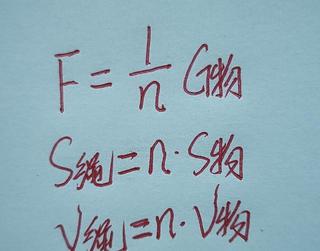 F = 1/n G物
S绳 = n·S物
V绳 = n·V物